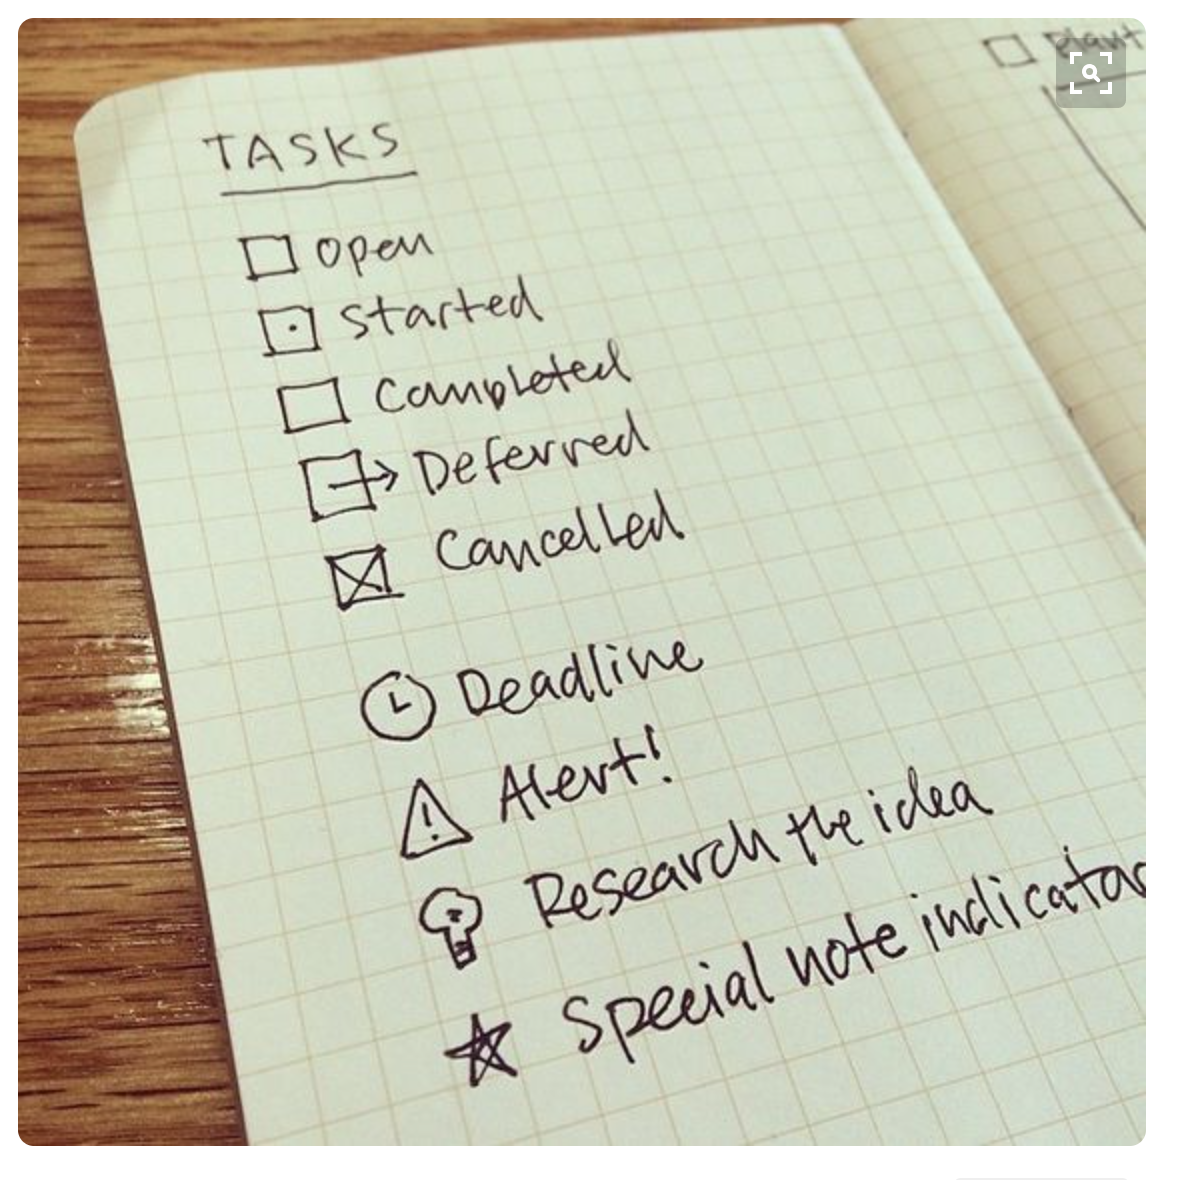 TASKS
Open
Started
Completed
Deferred
Cancelled
Deadline
Alert!
Research the idea
Special note indicator
Plant